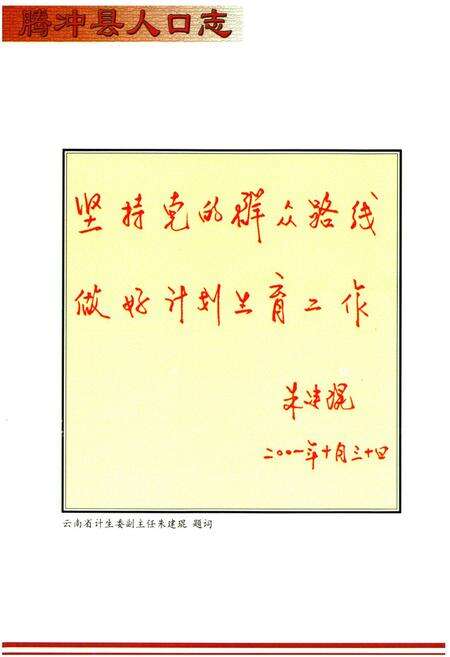 腾冲县人口志
坚持党的群众路线
做好计划生育工作
朱建琨
二〇〇一年十月三十日
云南省计生委副主任朱建琨 题词